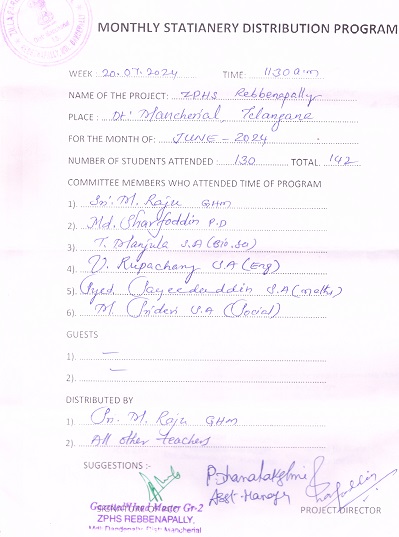 MONTHLY STATIANERY DISTRIBUTION PROGRAM
WEEK : 20.07.2024 TIME: 11.30 am
NAME OF THE PROJECT: ZPHS Rebbenapally
PLACE : Dt: Mancherial, Telangana
FOR THE MONTH OF: JUNE - 2024
NUMBER OF STUDENTS ATTENDED : 130 TOTAL 142
COMMITTEE MEMBERS WHO ATTENDED TIME OF PROGRAM
1) Sri. M. Raju GHM
2) Md. Sharfoddin P.D
3) T. Manjula S.A (Bio.Sci)
4) V. Rupachary S.A (Eng)
5) Syed Sayeeduddin S.A (maths)
6) M. Sridevi S.A (Social)
GUESTS
1). —
2). —
DISTRIBUTED BY
1) Sri. M. Raju GHM
2) All other teachers
SUGGESTIONS :-
P. Dhanalakshmi
Asst-Manager
PROJECT DIRECTOR
Gazetted Head Master Gr-2
ZPHS REBBENAPALLY,